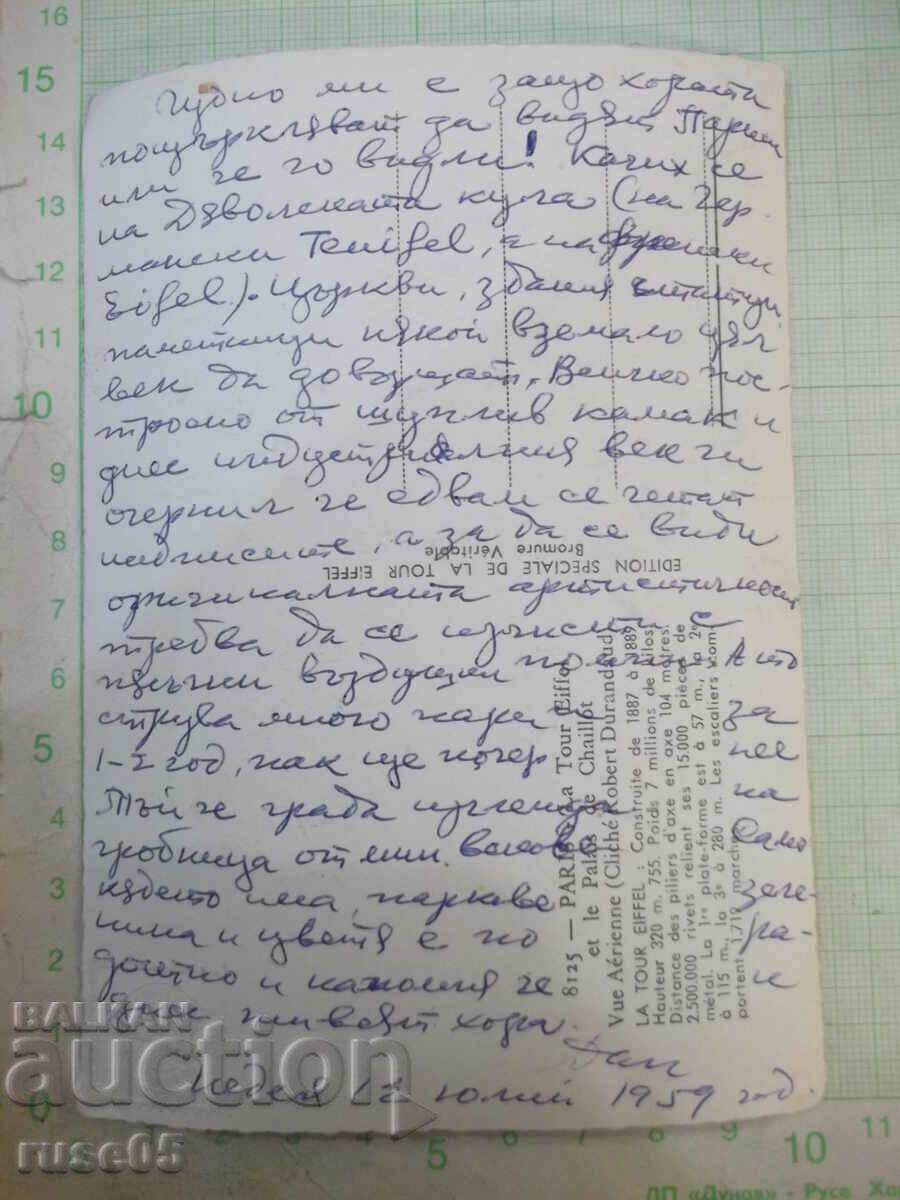 Чудно ми е защо хората
пощръкляват да видят Париж
или че го видяли! Качих се
на Дяволската кула (на Гер-
мански Teuifel, а на френски
Eifel). Църкви, здания, статуи,
паметници някой вземало цял
век да довършат. Всичко пос-
троено от шуплив камак и
днес индустриалния век ги
очернил че едвам се четат
надписите, а за да се види
оригиналната артистичност
трябва да се изчисти с
пясъчни въздушни А это
струва много пари и за
1-2 год. пак ще почер нее
Тъй че града изглежда на
гробница от мин. векове Само
където има паркове зеле-
нина и цветя е по
доетно и напомня че и
днес живеят хора.
Неделя 12 юлий 1959 год.
EDITION SPECIALE DE LA TOUR EIFFEL
Bromure Véritable
8125 — PARIS. La Tour Eiffel
et le Palais de Chaillot
Vue Aérienne (Cliché Robert Durandaud)
LA TOUR EIFFEL : Construite de 1887 à 1889
Hauteur 320 m. 755. Poids 7 millions de kilos.
Distance des piliers d'axe en axe 104 mètres.
2.500.000 rivets relient ses 15.000 pièces de
métal. La 1re plate-forme est à 57 m., la 2e
à 115 m., la 3e à 280 m. Les escaliers com-
portent 1.710 marches
BALKAN
auction
ruse05
16
15
14
13
12
11
10
9
8
7
6
5
4
3
2
1
0
5
6
7
8
9
10
11
ДП «Дунав» - Русе